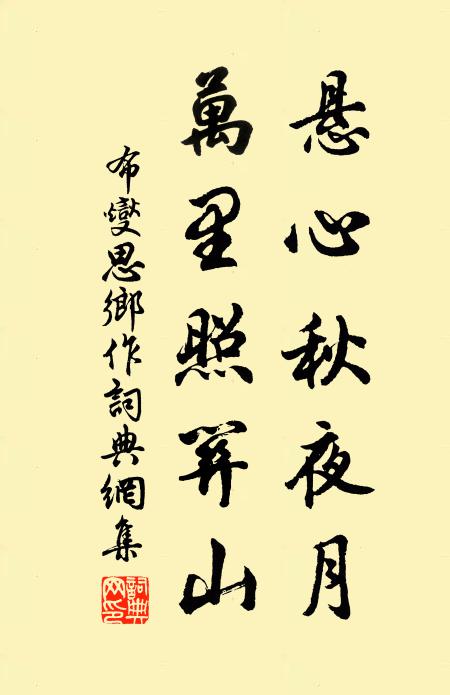 悬心秋夜月
萬里照関山
布燮思鄉作詞典網集
詞典網印